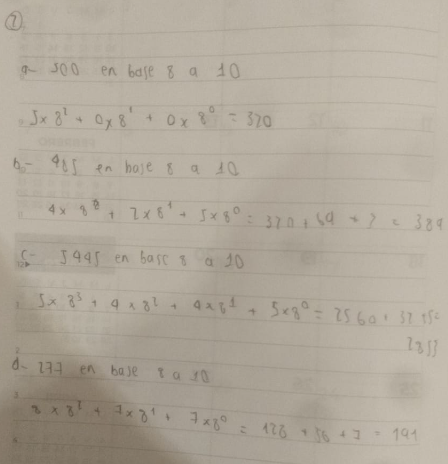 a- 500 en base 8 a 10
5x8² + 0x8¹ + 0x8⁰ = 320
b.- 485 en base 8 a 10
4x8² + 7x8¹ + 5x8⁰ = 320 + 64 + = 389
c- 5445 en base 8 a 10
5x8³ + 4x8² + 4x8¹ + 5x8⁰ = 2560 +
d- 277 en base 8 a 10
x8² + 7x8¹ + 7x8⁰ = 128 + 56 + 7 = 191